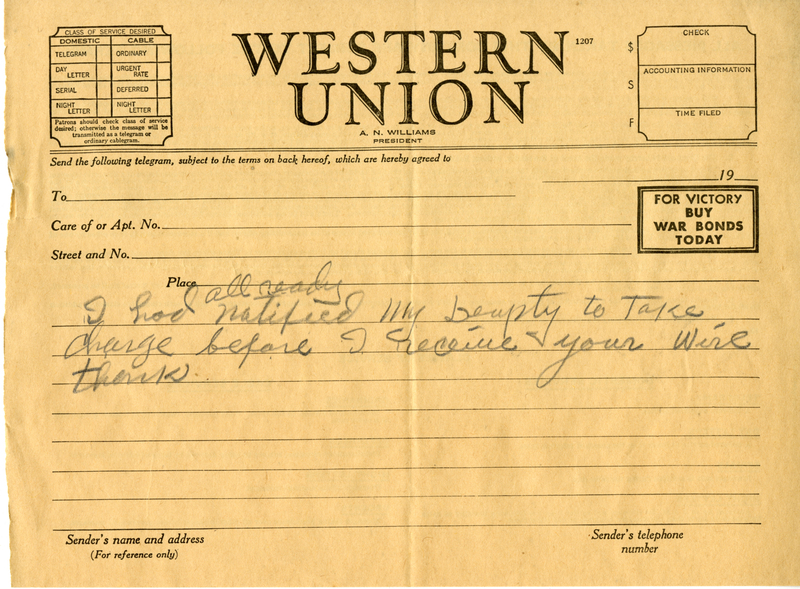 CLASS OF SERVICE DESIRED
DOMESTIC CABLE
TELEGRAM ORDINARY
DAY LETTER URGENT RATE
SERIAL DEFERRED
NIGHT LETTER NIGHT LETTER
Patrons should check class of service
desired; otherwise the message will be
transmitted as a telegram or
ordinary cablegram.
WESTERN
UNION
1207
A. N. WILLIAMS
PRESIDENT
$
S
F
CHECK
ACCOUNTING INFORMATION
TIME FILED
Send the following telegram, subject to the terms on back hereof, which are hereby agreed to
19
To
Care of or Apt. No.
Street and No.
Place
FOR VICTORY
BUY
WAR BONDS
TODAY
all ready
I had Natified My Deupty to Take
Charge before I receive your Wire
thank
Sender's name and address
(For reference only)
Sender's telephone
number